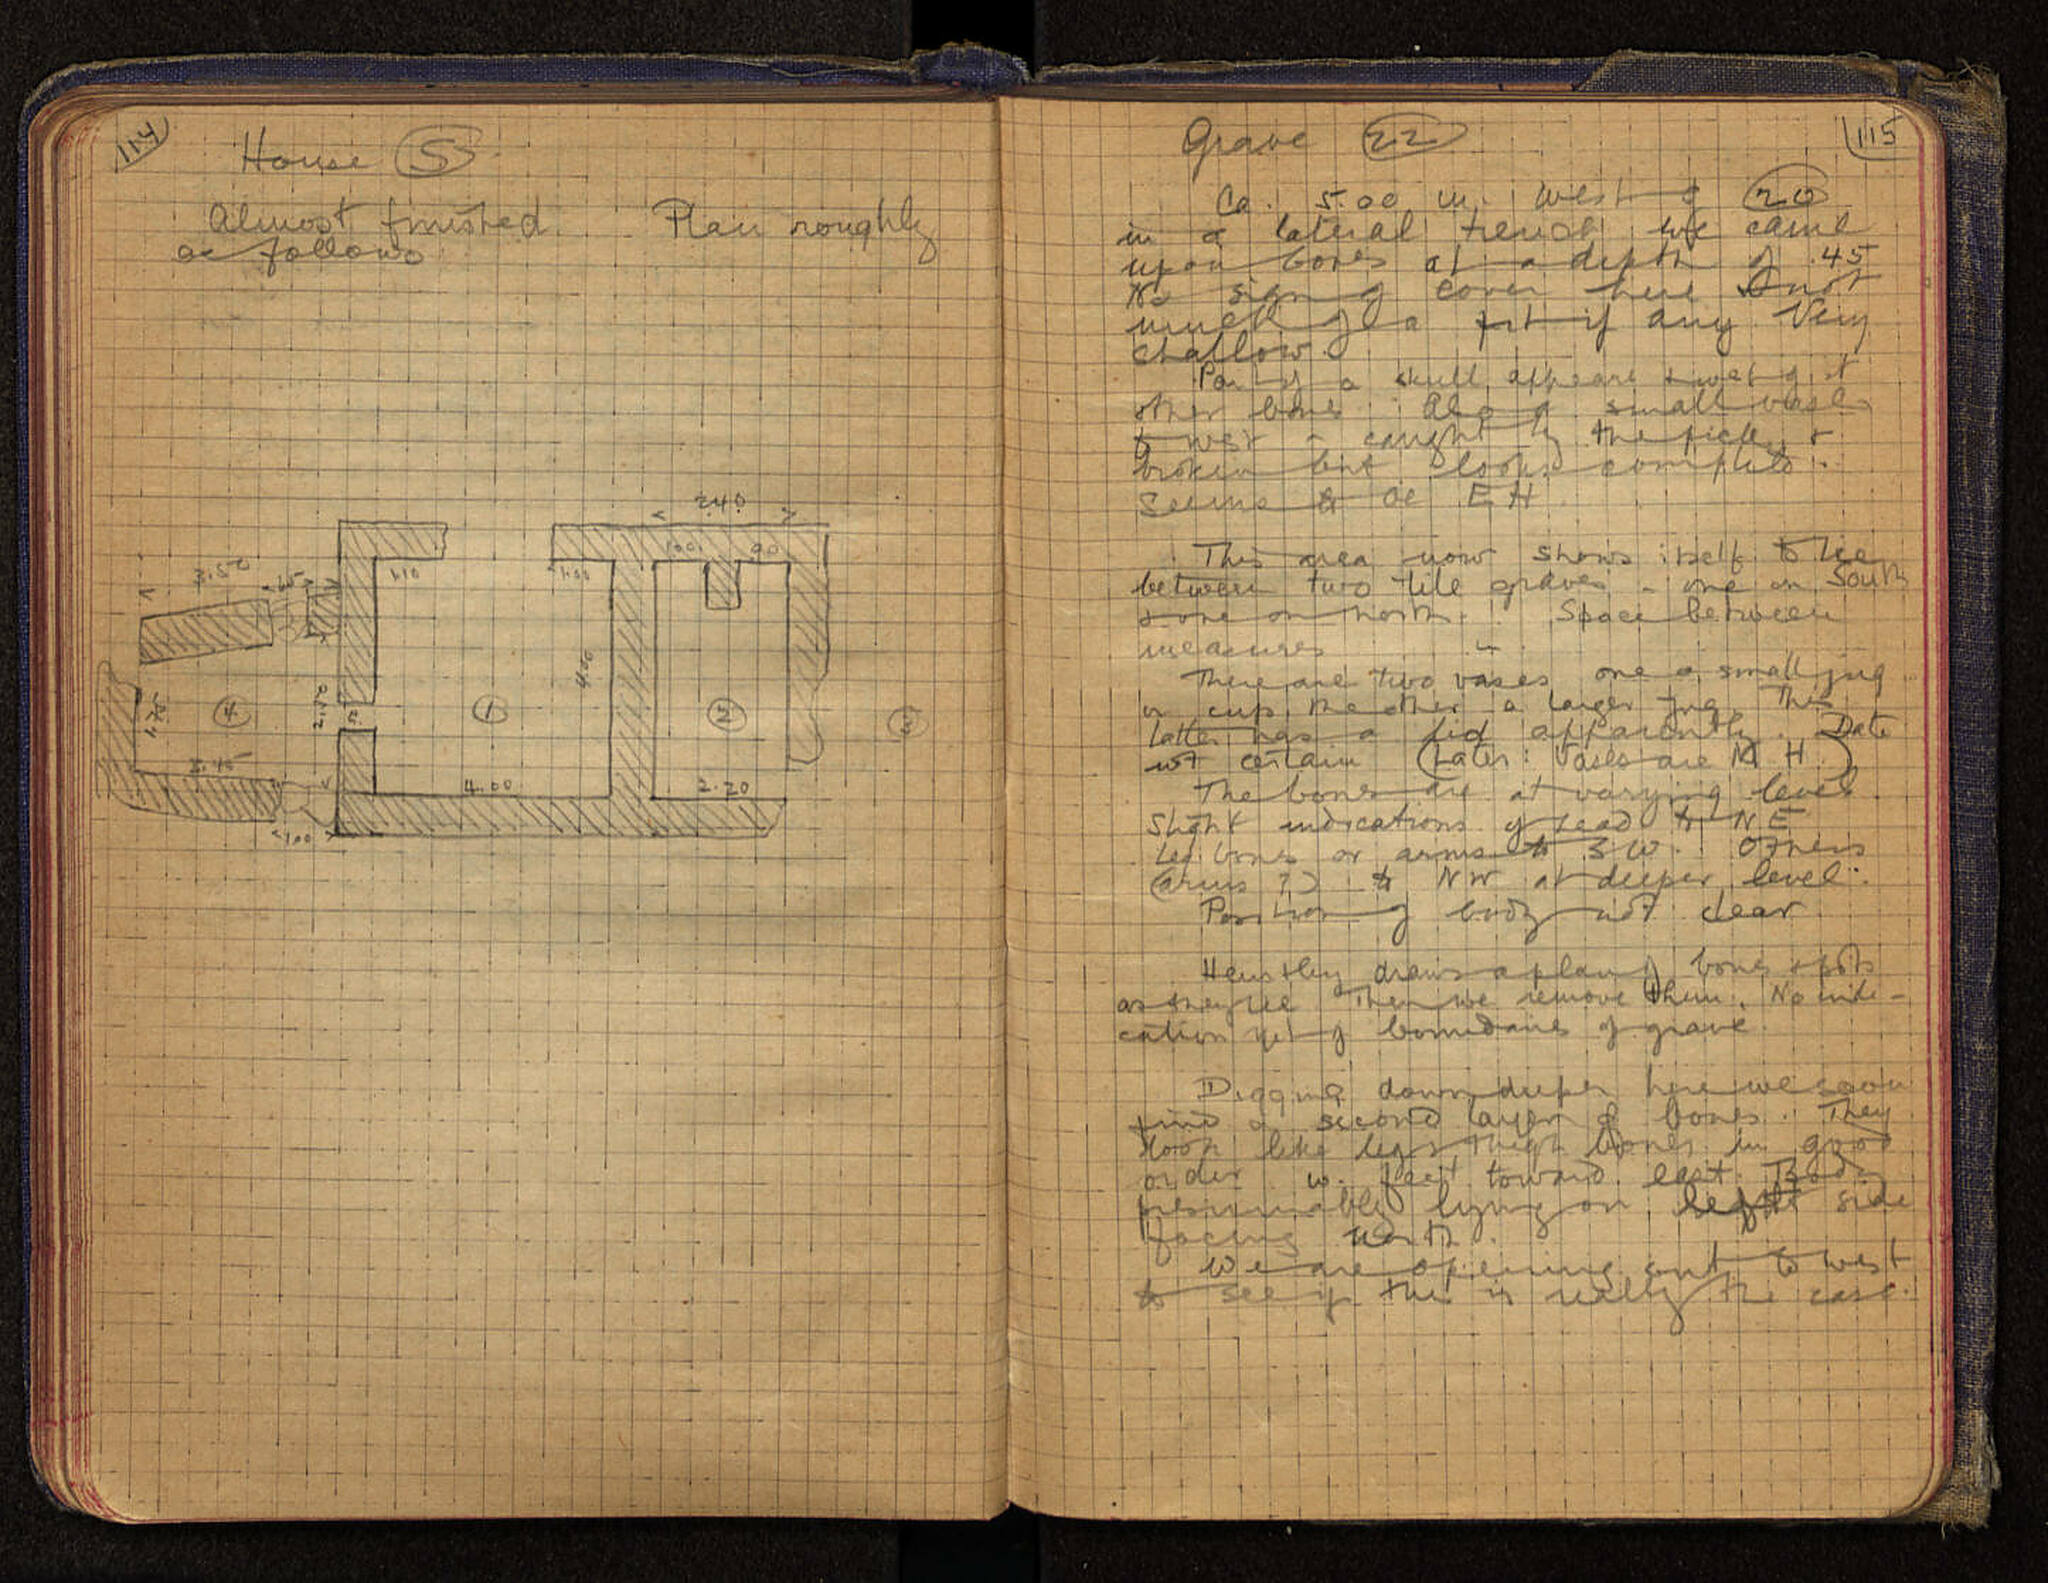 114
House (S)
Almost finished. Plan roughly
as follows
2.40
1.00 90
1.10 1.00
3.50
4.00
2.50
1.75
4 1 2 3
3.45
4.00 2.20
1.00
115
Grave (22)
Ca. 5.00 m. west of (20)
in a lateral trench we came
upon bones at a depth of .45
No sign of cover here & not
much of a pit if any Very
shallow.
Part of a skull appears & west of it
other bones. Also a small vase
to west - caught by the pick &
broken but looks complete.
Seems to be EH
This area now shows itself to lie
between two tile graves - one on South
& one on north. Space between
measures
There are two vases one a small jug
or cup the other a larger jug. The
latter has a lid apparently. Date
not certain (Later: Vases are M H.)
The bones are at varying level.
Slight indications of head to NE
Leg bones or arms to SW. Others
(arms?) to NW at deeper level.
Position of body not clear
Heurtley draws a plan of bones & pots
as they lie Then we remove them. No indi-
cation yet of boundaries of grave.
Digging down deeper here we soon
find a second layer of bones. They
look like leg & thigh bones in good
order w. feet toward east. Body
presumably lying on left side
facing north.
We are opening out to west
to see if this is really the case.